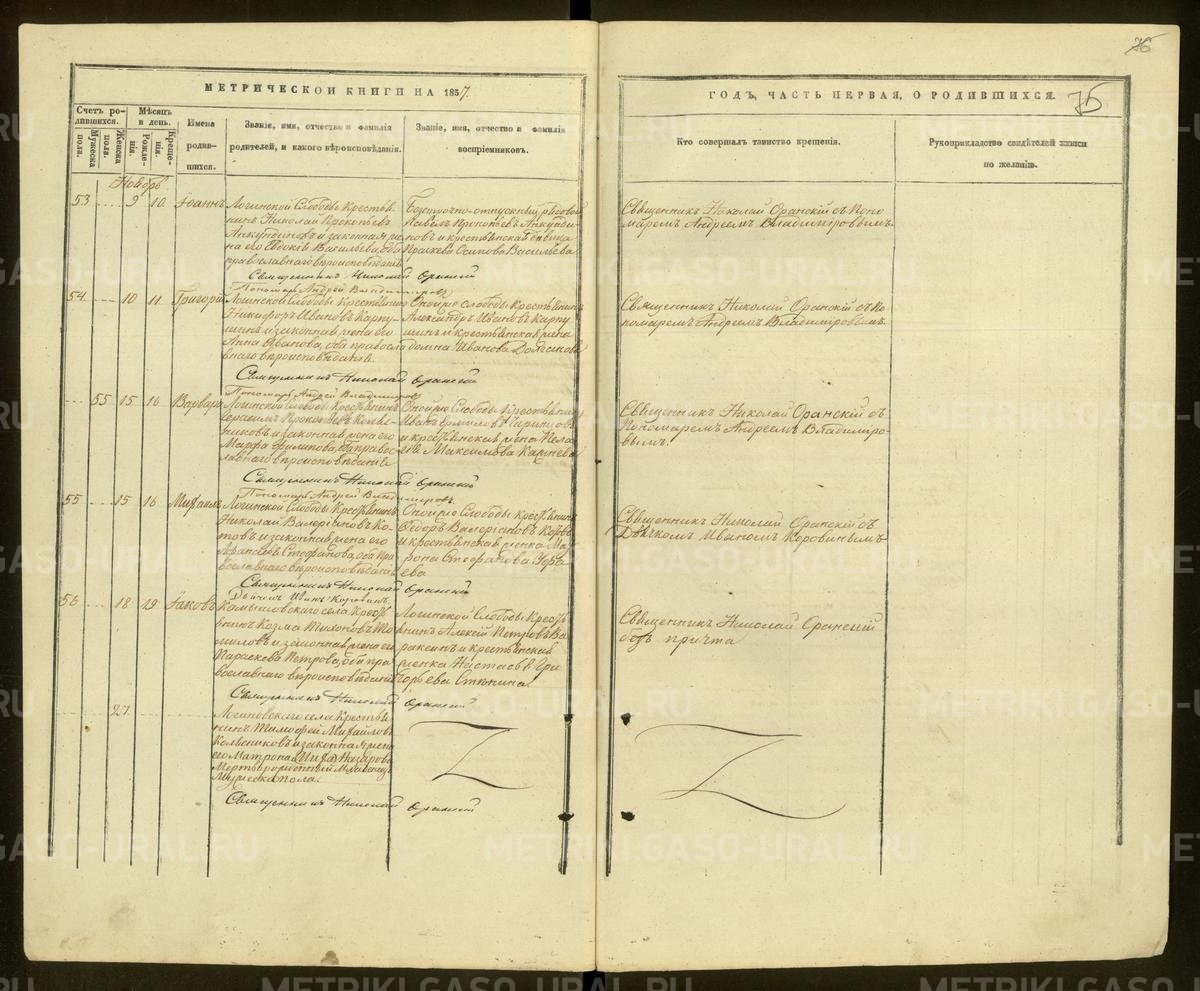 76
МЕТРИЧЕСКОЙ КНИГИ НА 1857.
ГОДЪ, ЧАСТЬ ПЕРВАЯ, О РОДИВШИХСЯ.
75
Счетъ родившихся.
Мужеска пола.
Женска пола.
Мѣсяцъ и день.
Рожденія.
Крещенія.
Имена родившихся.
Званіе, имя, отчество и фамилія
родителей, и какого вѣроисповѣданія.
Званіе, имя, отчество и фамилія
воспріемниковъ.
Кто совершалъ таинство крещенія.
Рукоприкладство свидѣтелей записи
по желанію.
Ноябрь
53 9 10 Іоаннъ
Логинской Слободы Крестья
нинъ Николай Прокопьевъ
и законная же
на его Евдокія Васильева, оба
православнаго вѣроисповѣданія
Безсрочно-отпускный рядовой
Павелъ Прокопьевъ
и крестьянская дѣвица
Осипова Васильева
Священникъ Николай Оранскій съ Поно
маремъ Андреемъ Владиміровымъ.
Священникъ Николай Оранскій
Пономарь Андрей Владиміровъ
54 10 11 Григорій
Логинской Слободы Крестьянинъ
Никифоръ Ивановъ Карпу
шинъ и законная жена его
Анна Иванова, оба правосла
внаго вѣроисповѣданія.
Слободы Крестьянинъ
Александръ Ивановъ Карпу
шинъ и крестьянская жена
Домна Иванова
Священникъ Николай Оранскій съ По
номаремъ Андреемъ Владиміровымъ.
Священникъ Николай Оранскій
Пономарь Андрей Владиміровъ
55 15 16 Варвара
Логинской Слободы Крестьянинъ
Герасимъ Прокопьевъ
и законная жена его
Марфа Филипова, оба правос
лавнаго вѣроисповѣданія
Слободы Крестьянинъ
Иванъ
и крестьянская жена Пела
гея Максимова
Священникъ Николай Оранскій съ
Пономаремъ Андреемъ Владиміро-
вымъ.
Священникъ Николай Оранскій
Пономарь Андрей Владиміровъ
55 15 16 Михаилъ
Логинской Слободы Крестьянинъ
Николай Валеріановъ Ко-
товъ и законная жена его
Стефанова, оба пра
вославнаго вѣроисповѣданія
Слободы Крестьянинъ
Ѳедоръ Валеріановъ
и крестьянская женка Мат
рона Стефанова
Священникъ Николай Оранскій съ
Дьячкомъ Иваномъ Коровинымъ
Священникъ Николай Оранскій
Дьячекъ Иванъ Коровинъ
56 18 19 Іаковъ
Камышовскаго села Крестья
нинъ Козма Тихоновъ
и законная жена его
Параскева Петрова, оба пра
вославнаго вѣроисповѣданія
Логинской Слободы Крестья
нинъ Алексѣй Петровъ
и крестьянская
женка Настасья Гри
горьева
Священникъ Николай Оранскій
безъ причта
Священникъ Николай Оранскій
27
Логиновскаго села Крестья
нинъ Тимофей Михайловъ
и законная жена
его Матрона Назарова
Мертворожденный Младенецъ
Мужеска пола.
Священникъ Николай Оранскій
METRIKI.GASO-URAL.RU